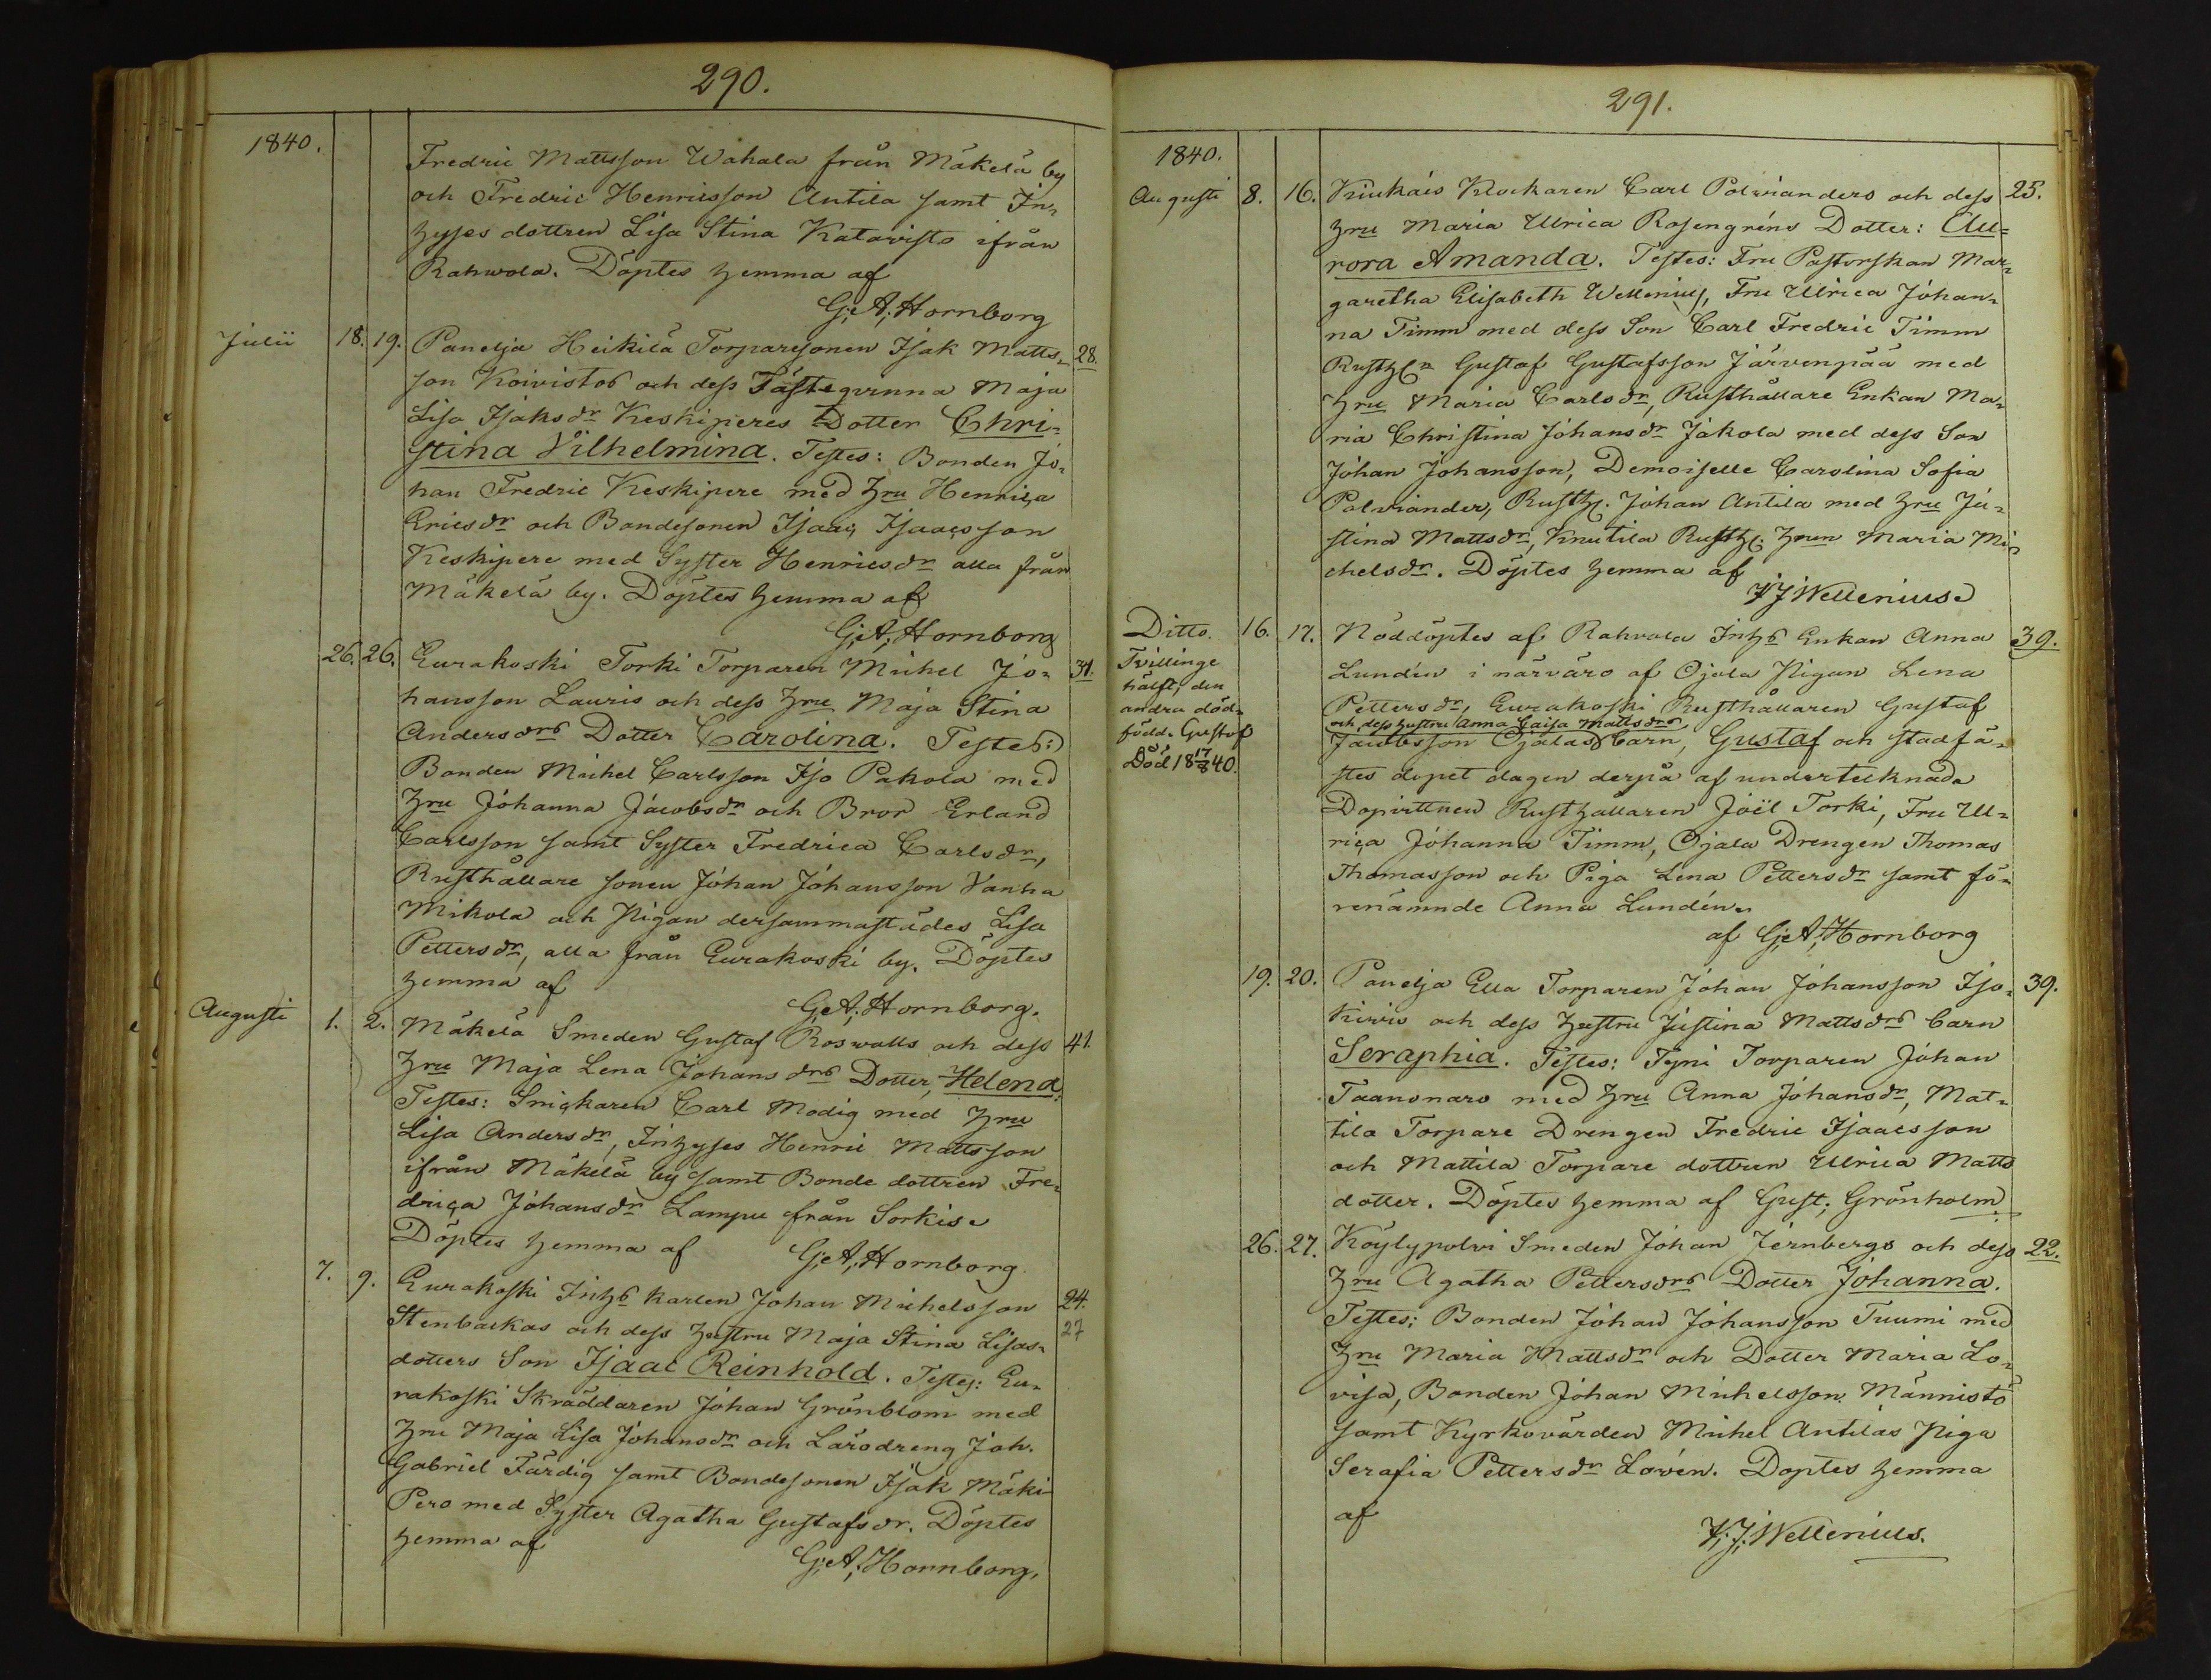 290.
1840.
Fredric Mattsson Wahala från Mäkelä by
och Fredric Henricsson Antila samt In-
hyses dottren Lisa Stina Katavisto ifrån
Rahwola. Döptes hemma af
G; A; Hornborg
Julii 18. 19. Panelja Heikilä Torparesonen Isak Matts- 28.
son Koivistos och dess Fästeqvinna Maja
Lisa Isaksdr Keskiperes Dotter Chri-
stina Vilhelmina. Testes: Bonden Jo-
han Fredric Keskipere med hru Henrica
Ericsdr och Bondesonen Isaac Isaacsson
Keskipere med Syster Henricsdr alla från
Mäkelä by. Döptes hemma af
G; A; Hornborg
26. 26. Eurakoski Torki Torparen Michel Jo- 31.
hansson Lauris och dess hru Maja Stina
Andersdrs Dotter Carolina. Testes:
Bonden Michel Carlsson Iso Pakola med
hru Johanna Jacobsdr och Bror Erland
Carlsson samt Syster Fredrica Carlsdr,
Rusthållare sonen Johan Johansson Vanha
Mikola och Pigan dersammastädes Lisa
Pettersdr, alla från Eurakoski by. Döptes
hemma af
G; A; Hornborg.
Augusti 1. 2. Mäkelä Smeden Gustaf Roswalls och dess 41.
hru Maja Lena Johansdrs Dotter, Helena.
Testes: Snickaren Carl Modig med hru
Lisa Andersdr, Inhyses Henric Mattsson
ifrån Mäkelä by samt Bonde dottren Fre-
drica Johansdr Lampu från Sorkis.
Döptes hemma af G; A; Hornborg.
7. 9. Eurakoski Inhs karlen Johan Michelsson 24.
Stenbackas och dess hustru Maja Stina Lisas- 27
dotters Son Isaac Reinhold. Testes: Eu-
rakoski Skräddaren Johan Grönblom med
hru Maja Lisa Johansdr och Lärodreng Joh.
Gabriel Färdig samt Bondesonen Isak Mäki-
Pero med Syster Agatha Gustafsdr. Döptes
hemma af
G; A; Hornborg.
291.
1840.
Augusti 8. 16. Kiukais Klockaren Carl Polvianders och dess 25.
hru Maria Ulrica Rosengréns Dotter: Au-
rora Amanda. Testes: Fru Pastorskan Mar-
garetha Elisabeth Wellenius, Fru Ulrica Johan-
na Timm med dess Son Carl Fredric Timm
Gustaf Gustafsson Järvenpää med
hru Maria Carlsdr, Rusthållare Enkan Ma-
ria Christina Johansdr Jakola med dess Son
Johan Johansson, Demoiselle Carolina Sofia
Polviander, Rusth. Johan Antila med hru Ju-
stina Mattsdr, Knutila Rusth. hrun Maria Mi-
chelsdr. Döptes hemma af
Wellenius.
Ditto. 16. 17. Nöddöptes af Rahvola Inhs Enkan Anna 39.
Tvillinge
hälft; den
andra död-
född. Gustaf
Död 18 17/8 40.
Lundén i närvaro af Ojala Pigan Lena
Pettersdr, Eurakoski Rusthållaren Gustaf
och dess hustru Anna Caisa Mattsdrs
Jacobsson Ojalas Barn, Gustaf och stadfä-
stes dopet dagen derpå af undertecknade
Dopvittnen Rusthållaren Joël Torki, Fru Ul-
rica Johanna Timm, Ojala Drengen Thomas
Thomasson och Piga Lena Pettersdr samt fö-
renämnde Anna Lundén.
af G; A; Hornborg
19. 20. Panelja Ella Torparen Johan Johansson Iso- 39.
kivis och dess hustru Justina Mattsdrs Barn
Seraphia. Testes: Tyni Torparen Johan
Taanonaro med hru Anna Johansdr, Mat-
tila Torpare Drengen Fredric Isaacsson
och Mattila Torpare dottren Ulrica Matts
dotter. Döptes hemma af Gust; Grönholm.
26. 27. Köylypolvi Smeden Johan Jernbergs och dess 22.
hru Agatha Pettersdrs Dotter Johanna.
Testes: Bonden Johan Johansson Tuumi med
hru Maria Mattsdr och Dotter Maria Lo-
visa, Bonden Johan Michelsson Männistö
samt Kyrkovärden Michel Antilas Piga
Serafia Pettersdr Lovén. Döptes hemma
af
Wellenius.